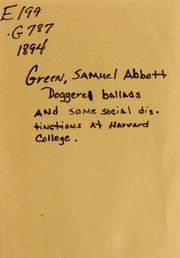 E199
.G787
1894
Green, Samuel Abbott
Doggerel ballads
AND some social dis-
tinctions at Harvard
College.